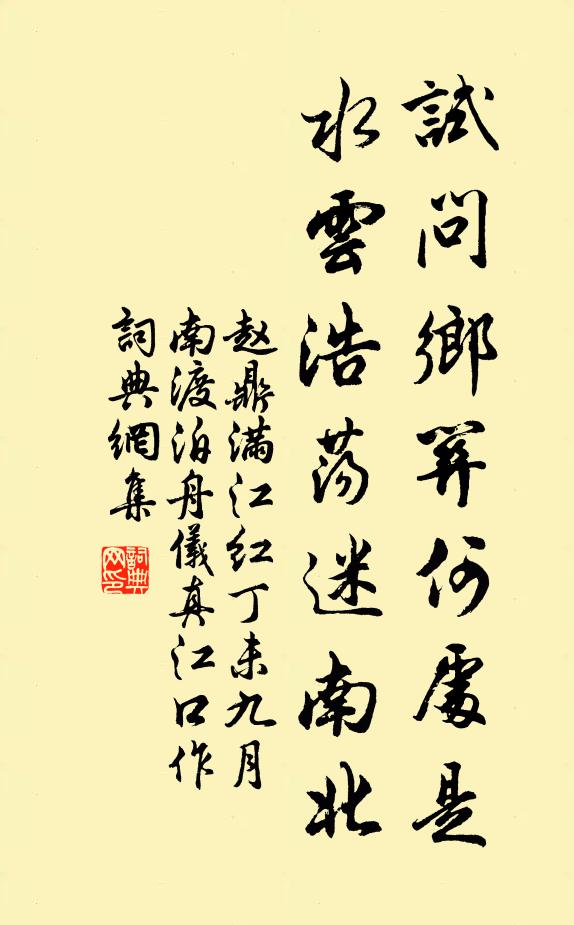 試問鄉關何處是
水雲浩蕩迷南北
赵鼎滿江红丁未九月
南渡泊舟儀真江口作
詞典網集
詞典
网印